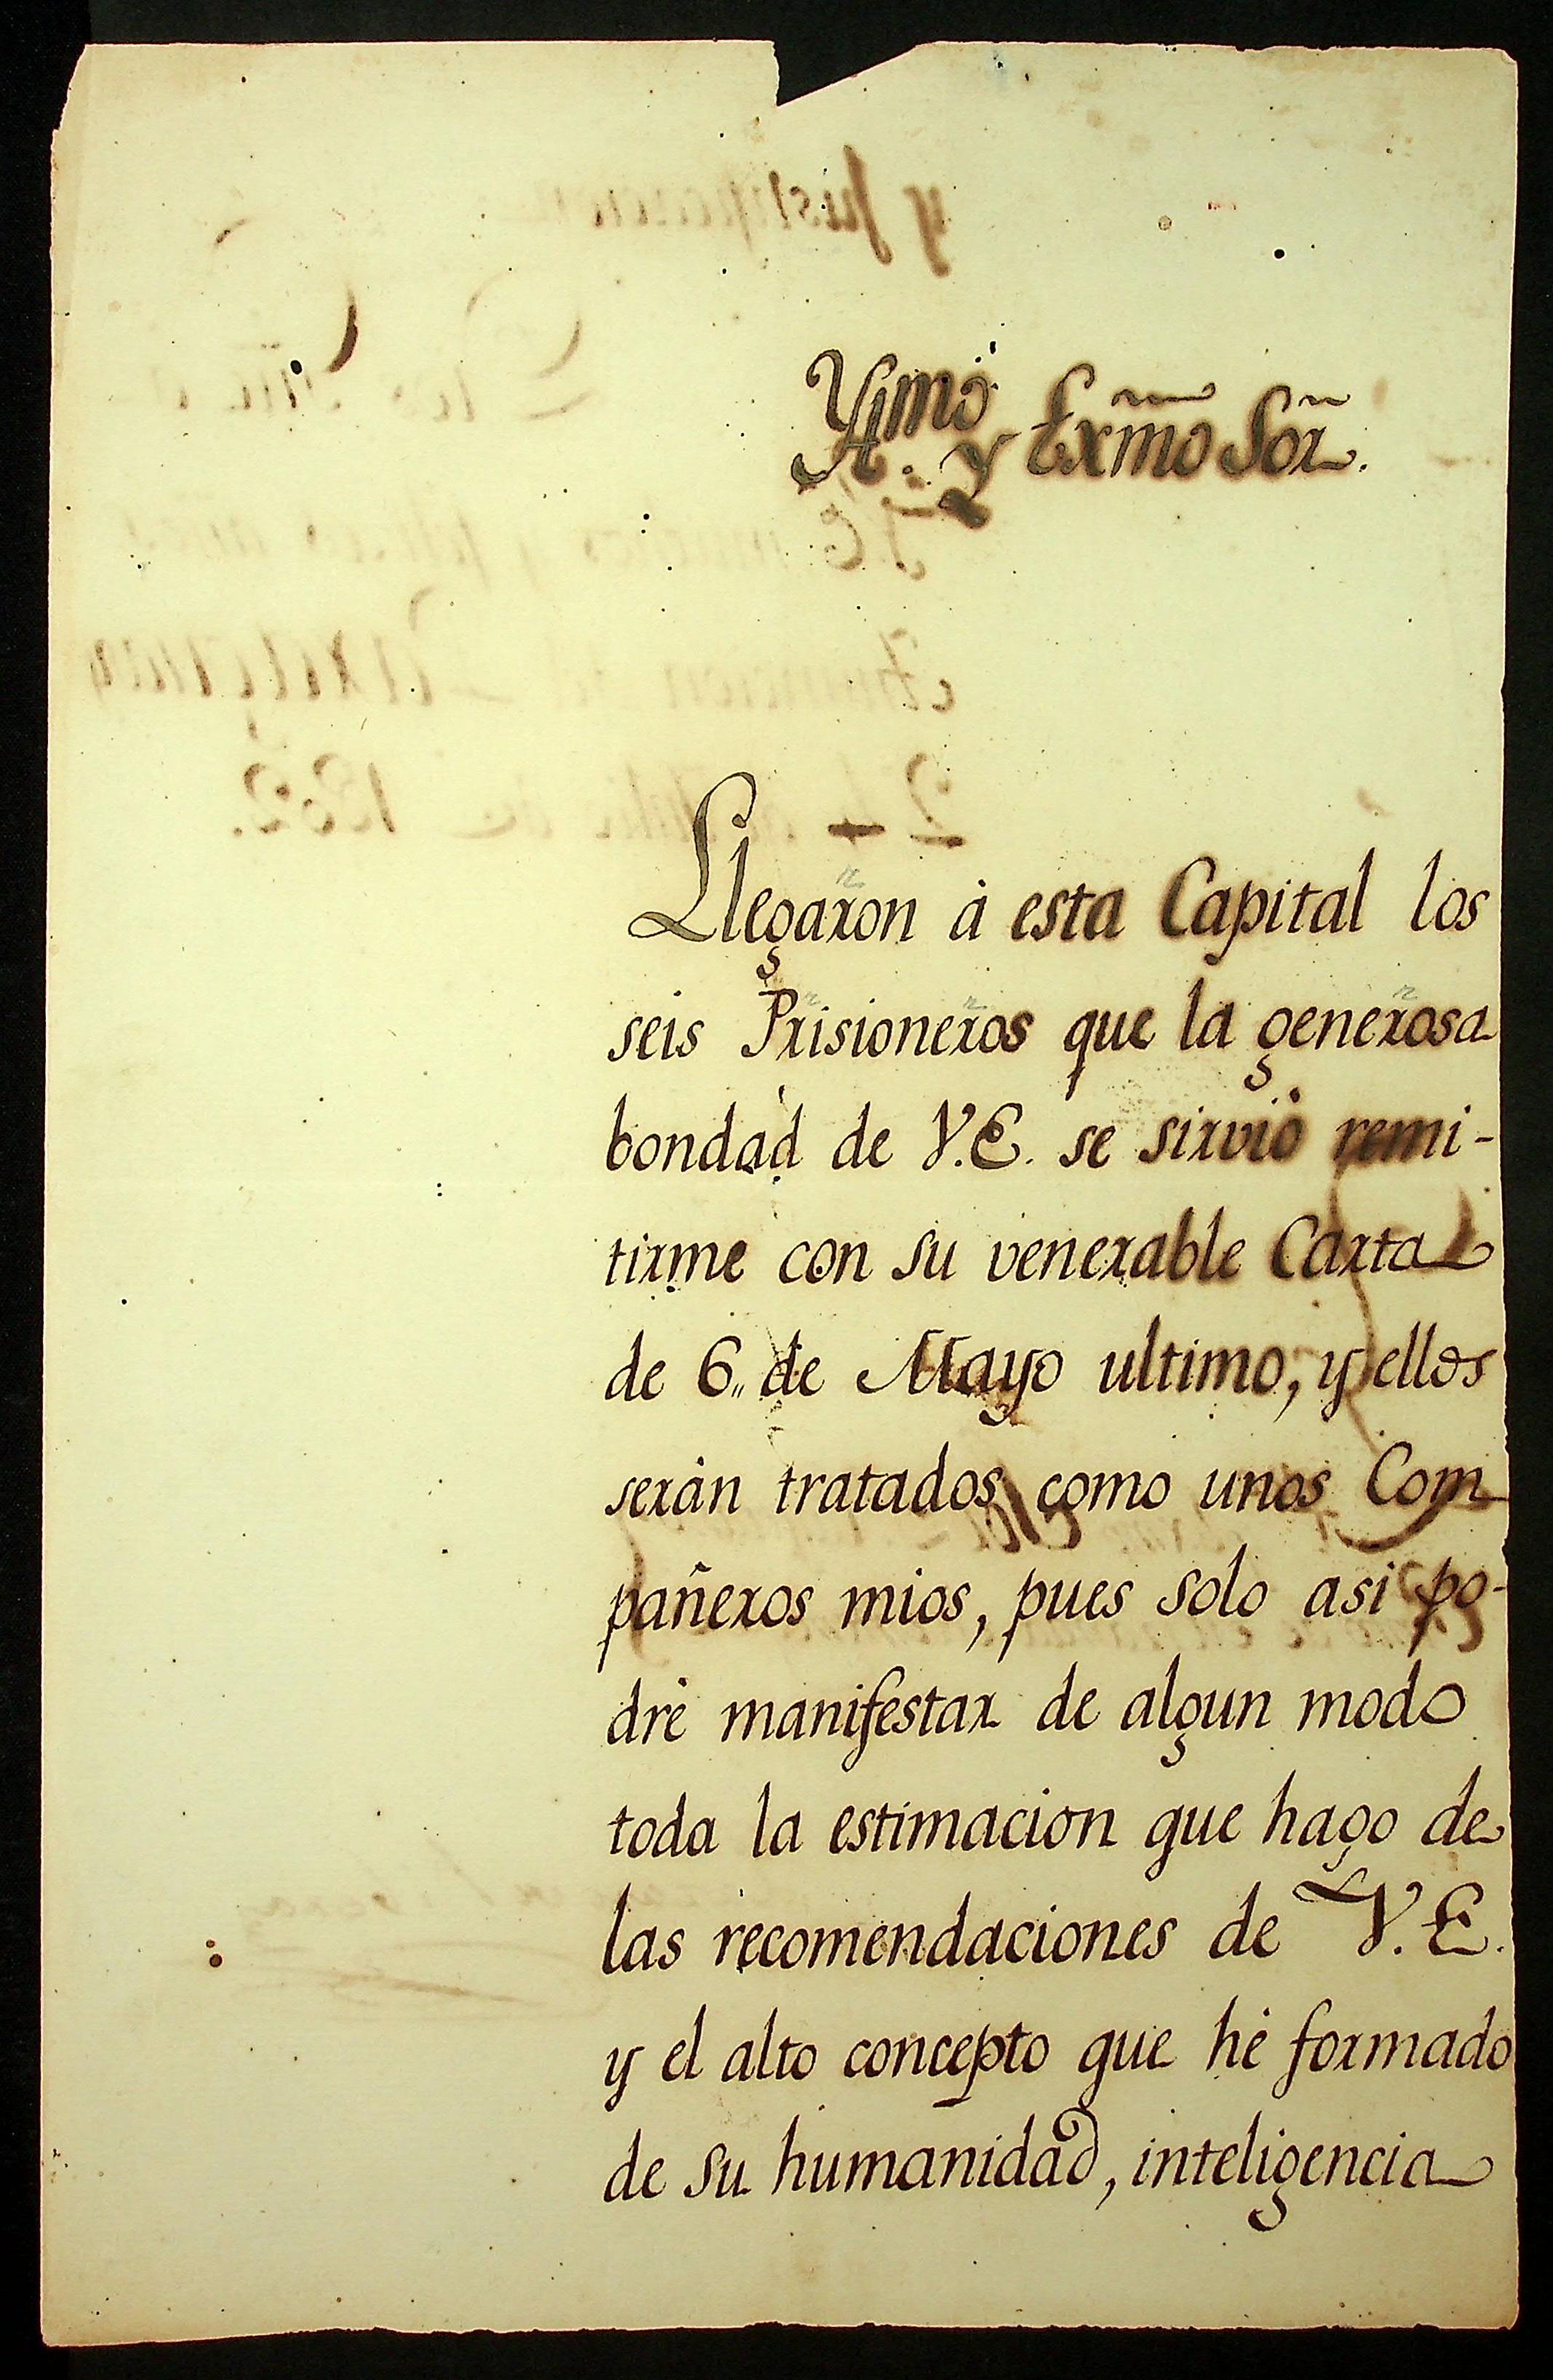 Yllmo. y Exmo Sor.
Llegaron á esta Capital los
seis Prisioneros que la generosa
bondad de V.E. se sirvió remi-
tirme con su venerable Carta
de 6,, de Mayo ultimo, y ellos
serán tratados como unos Com
pañeros mios, pues solo asi po-
dré manifestar de algun modo
toda la estimacion que hago de
las recomendaciones de V.E.
y el alto concepto que hé formado
de su humanidad, inteligencia